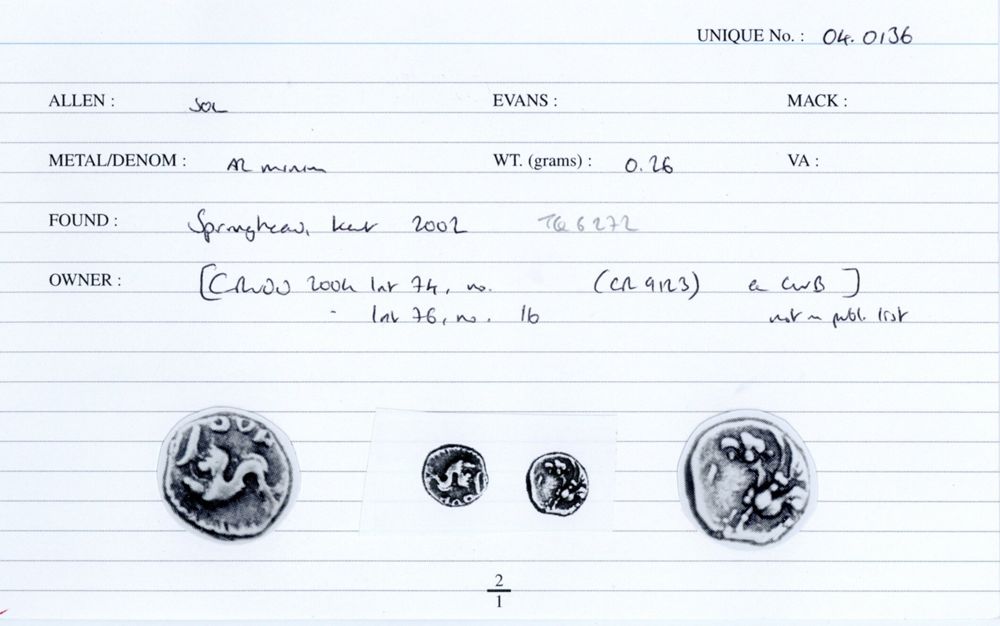 UNIQUE No. : 04. 0136
ALLEN : SOL EVANS : MACK :
METAL/DENOM : AR minim WT. (grams) : 0.26 VA :
FOUND : Springhead, Kent 2002 TQ 6272
OWNER : [ 2004 Int 74, no. (CR 9123) a CWB ]
- Int 76, no. 16 not in publ. list
2
1